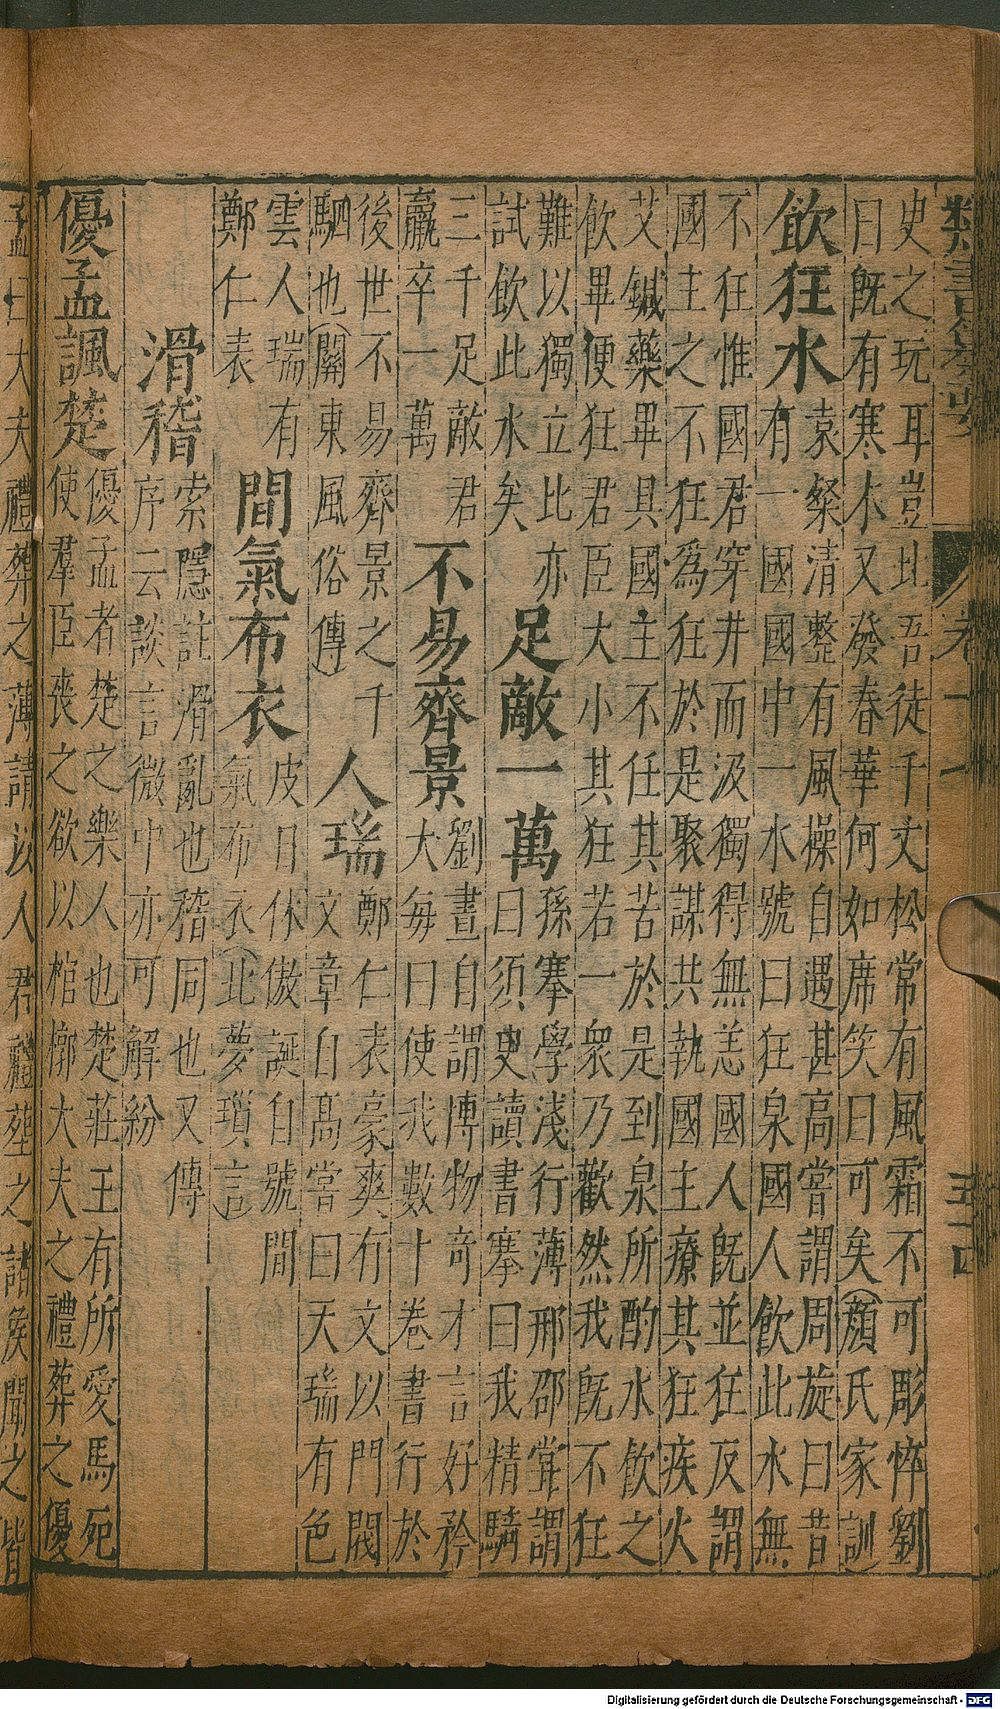 類書纂要 卷十一 五十四
史之玩耳豈比吾徒千丈松常有風霜不可彫悴劉
曰既有寒木又發春華何如席笑曰可矣(顏氏家訓
飲狂水
袁粲清整有風操自遇甚高嘗謂周旋曰昔
有一國國中一水號曰狂泉國人飲此水無
不狂惟國君穿井而汲獨得無恙國人既並狂反謂
國主之不狂爲狂於是聚謀共執國主療其狂疾火
艾鍼藥畢具國主不任其苦於是到泉所酌水飲之
飲畢便狂君臣大小其狂若一衆乃歡然我既不狂
難以獨立比亦
試飲此水矣
足敵一萬
孫搴學淺行薄邢邵嘗謂
曰須更讀書搴曰我精騎
三千足敵君
羸卒一萬
不易齊景
劉晝自謂博物奇才言好矜
大每曰使我數十卷書行於
後世不易齊景之千
駟也(關東風俗傳)
人瑞
鄭仁表豪爽有文以門閥
文章自高嘗曰天瑞有色
雲人瑞有
鄭仁表
間氣布衣
皮日休傲誕自號間
氣布衣(北夢瑣言)
滑稽
索隱註滑亂也稽同也又傳
序云談言微中亦可解紛
優孟諷楚
優孟者楚之樂人也楚莊王有所愛馬死
使羣臣喪之欲以棺槨大夫之禮葬之優
孟曰大夫禮葬之薄請以人君禮葬之諸侯聞之皆
Digitalisierung gefördert durch die Deutsche Forschungsgemeinschaft - DFG